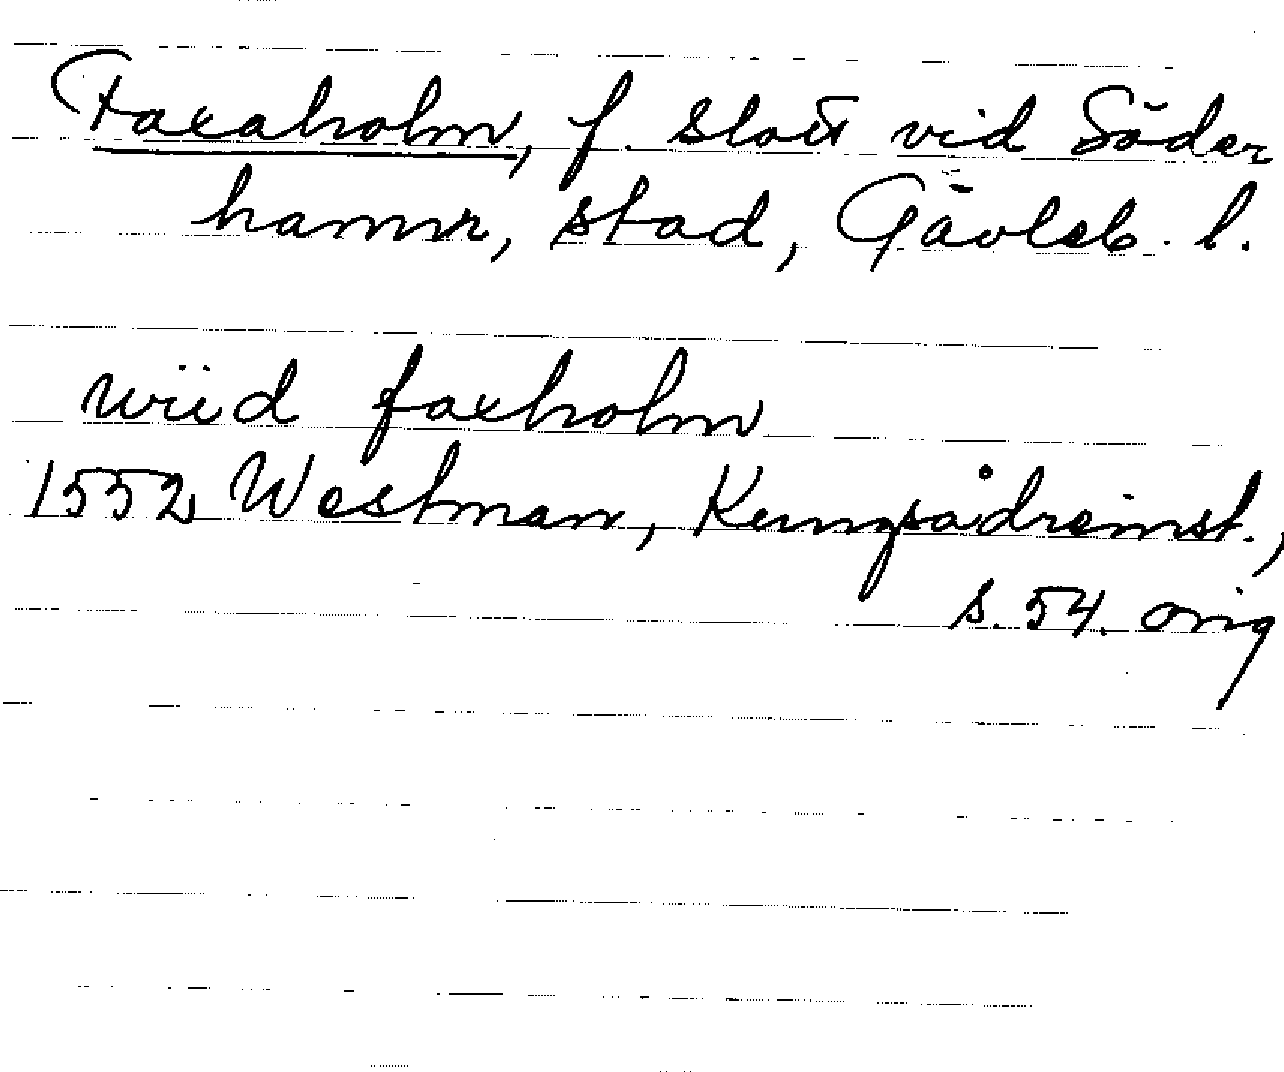 Faxaholm, f. slott vid Söder
hamn, stad, Gävleb. l.
wiid faxholm
1552 Westman, Kungsådreinst.,
s. 54. orig